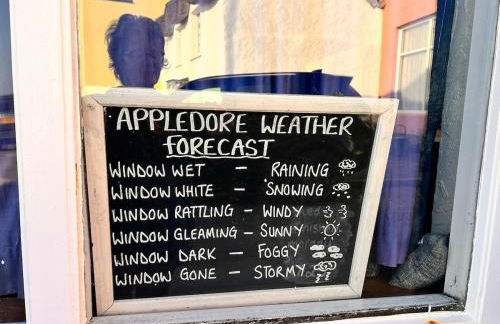 APPLEDORE WEATHER
FORECAST
WINDOW WET — RAINING
WINDOW WHITE — SNOWING
WINDOW RATTLING — WINDY
WINDOW GLEAMING — SUNNY
WINDOW DARK — FOGGY
WINDOW GONE — STORMY